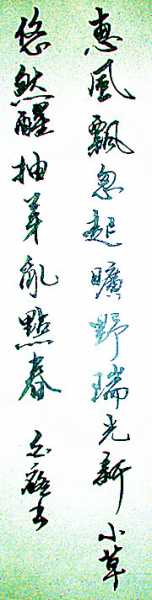 惠風飄忽起曠野瑞光新小草
悠然醒抽芽亂點春